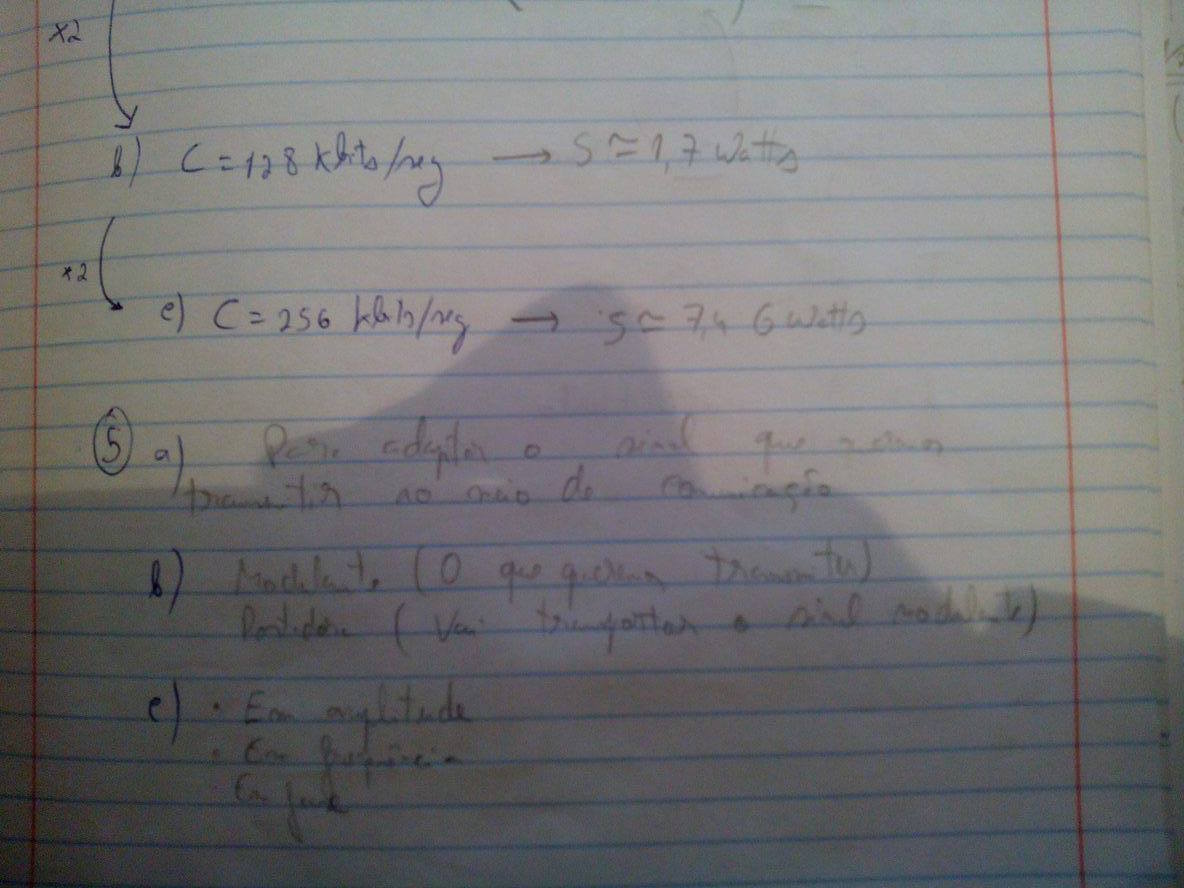 x2
b) C = 128 kbits/seg → S ≃ 1,7 Watts
x2
c) C = 256 kbits/seg → S ≃ 7,46 Watts
5 a) Para adaptar o sinal que
transmitir ao meio de comunicação
b) Modulante (O que queremos transmitir)
Portadora (Vai transportar o sinal modulante)
c) • Em amplitude
• Em frequência
Em fase